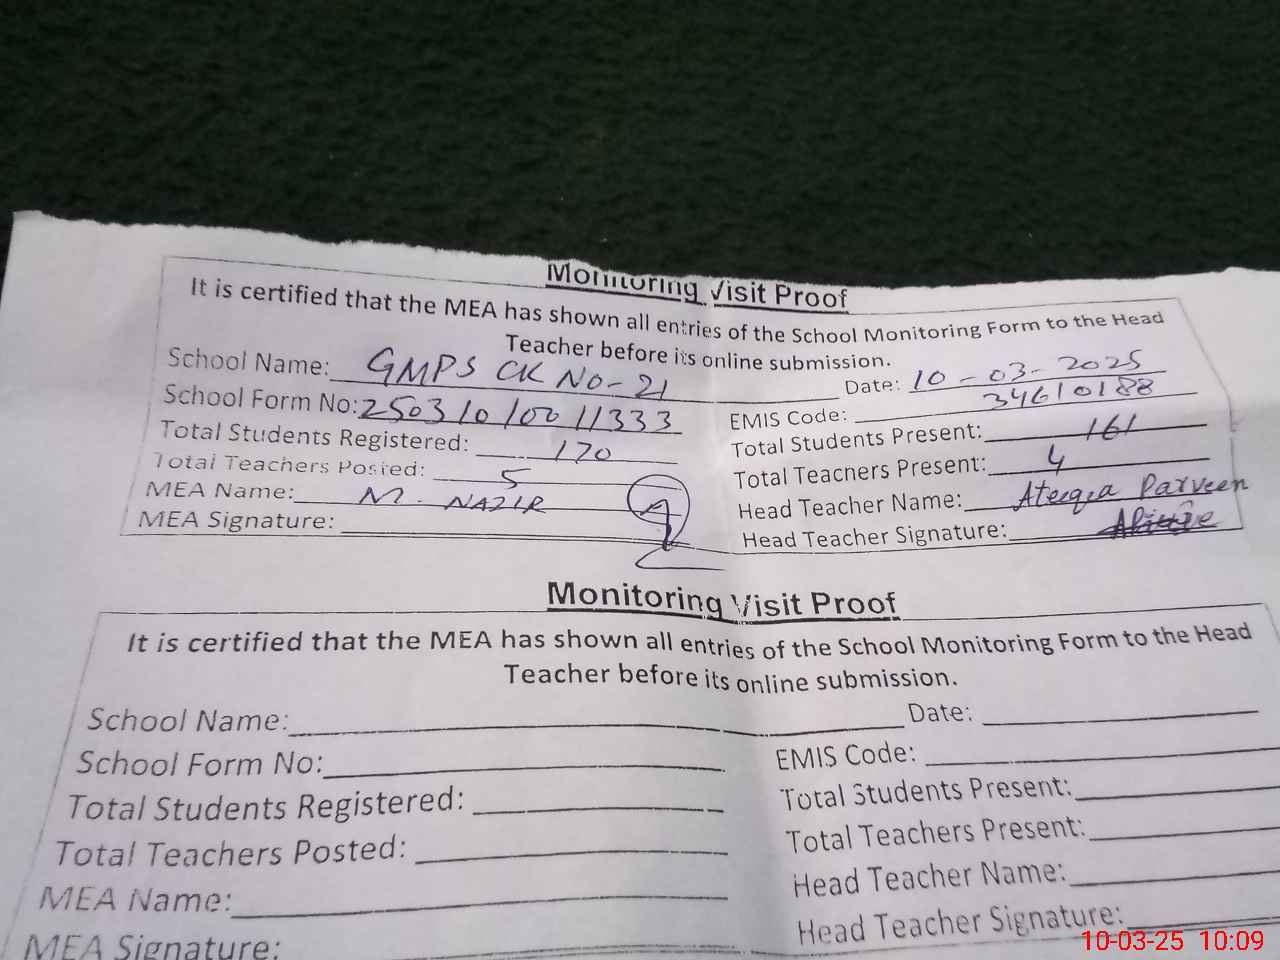 Monitoring Visit Proof
It is certified that the MEA has shown all entries of the School Monitoring Form to the Head
Teacher before its online submission.
School Name: GMPS CK NO-21 Date: 10-03-2025
School Form No: 25031010011333 EMIS Code: 34610188
Total Students Registered: 170 Total Students Present: 161
Total Teachers Posted: 5 Total Teachers Present: 4
MEA Name: M. NAZIR Head Teacher Name: Ateeqa Parveen
MEA Signature: Head Teacher Signature:
Monitoring Visit Proof
It is certified that the MEA has shown all entries of the School Monitoring Form to the Head
Teacher before its online submission.
School Name: Date:
School Form No: EMIS Code:
Total Students Registered: Total Students Present:
Total Teachers Posted: Total Teachers Present:
MEA Name: Head Teacher Name:
MEA Signature: Head Teacher Signature:
10-03-25 10:09